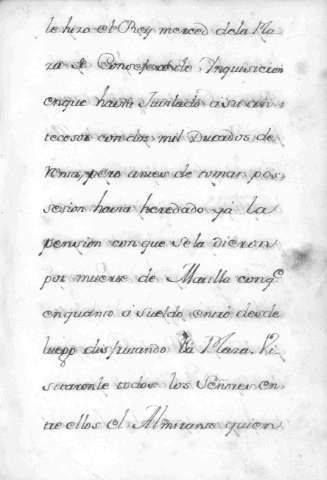 le hizo el Rey merced de la Pla
za de Consejero de Inquisicion
en que havia Juntado a su an
tecesor con dos mil Ducados de
Renta, pero antes de tomar pos-
sesion havia heredado ya la
pension con que se la dieron
por muerte de Murillo con q.e
en quanto a sueldo entró desde
luego disfrutando la Plaza. Vi
sitaronle todos los Señores en
tre ellos el Almirante quien